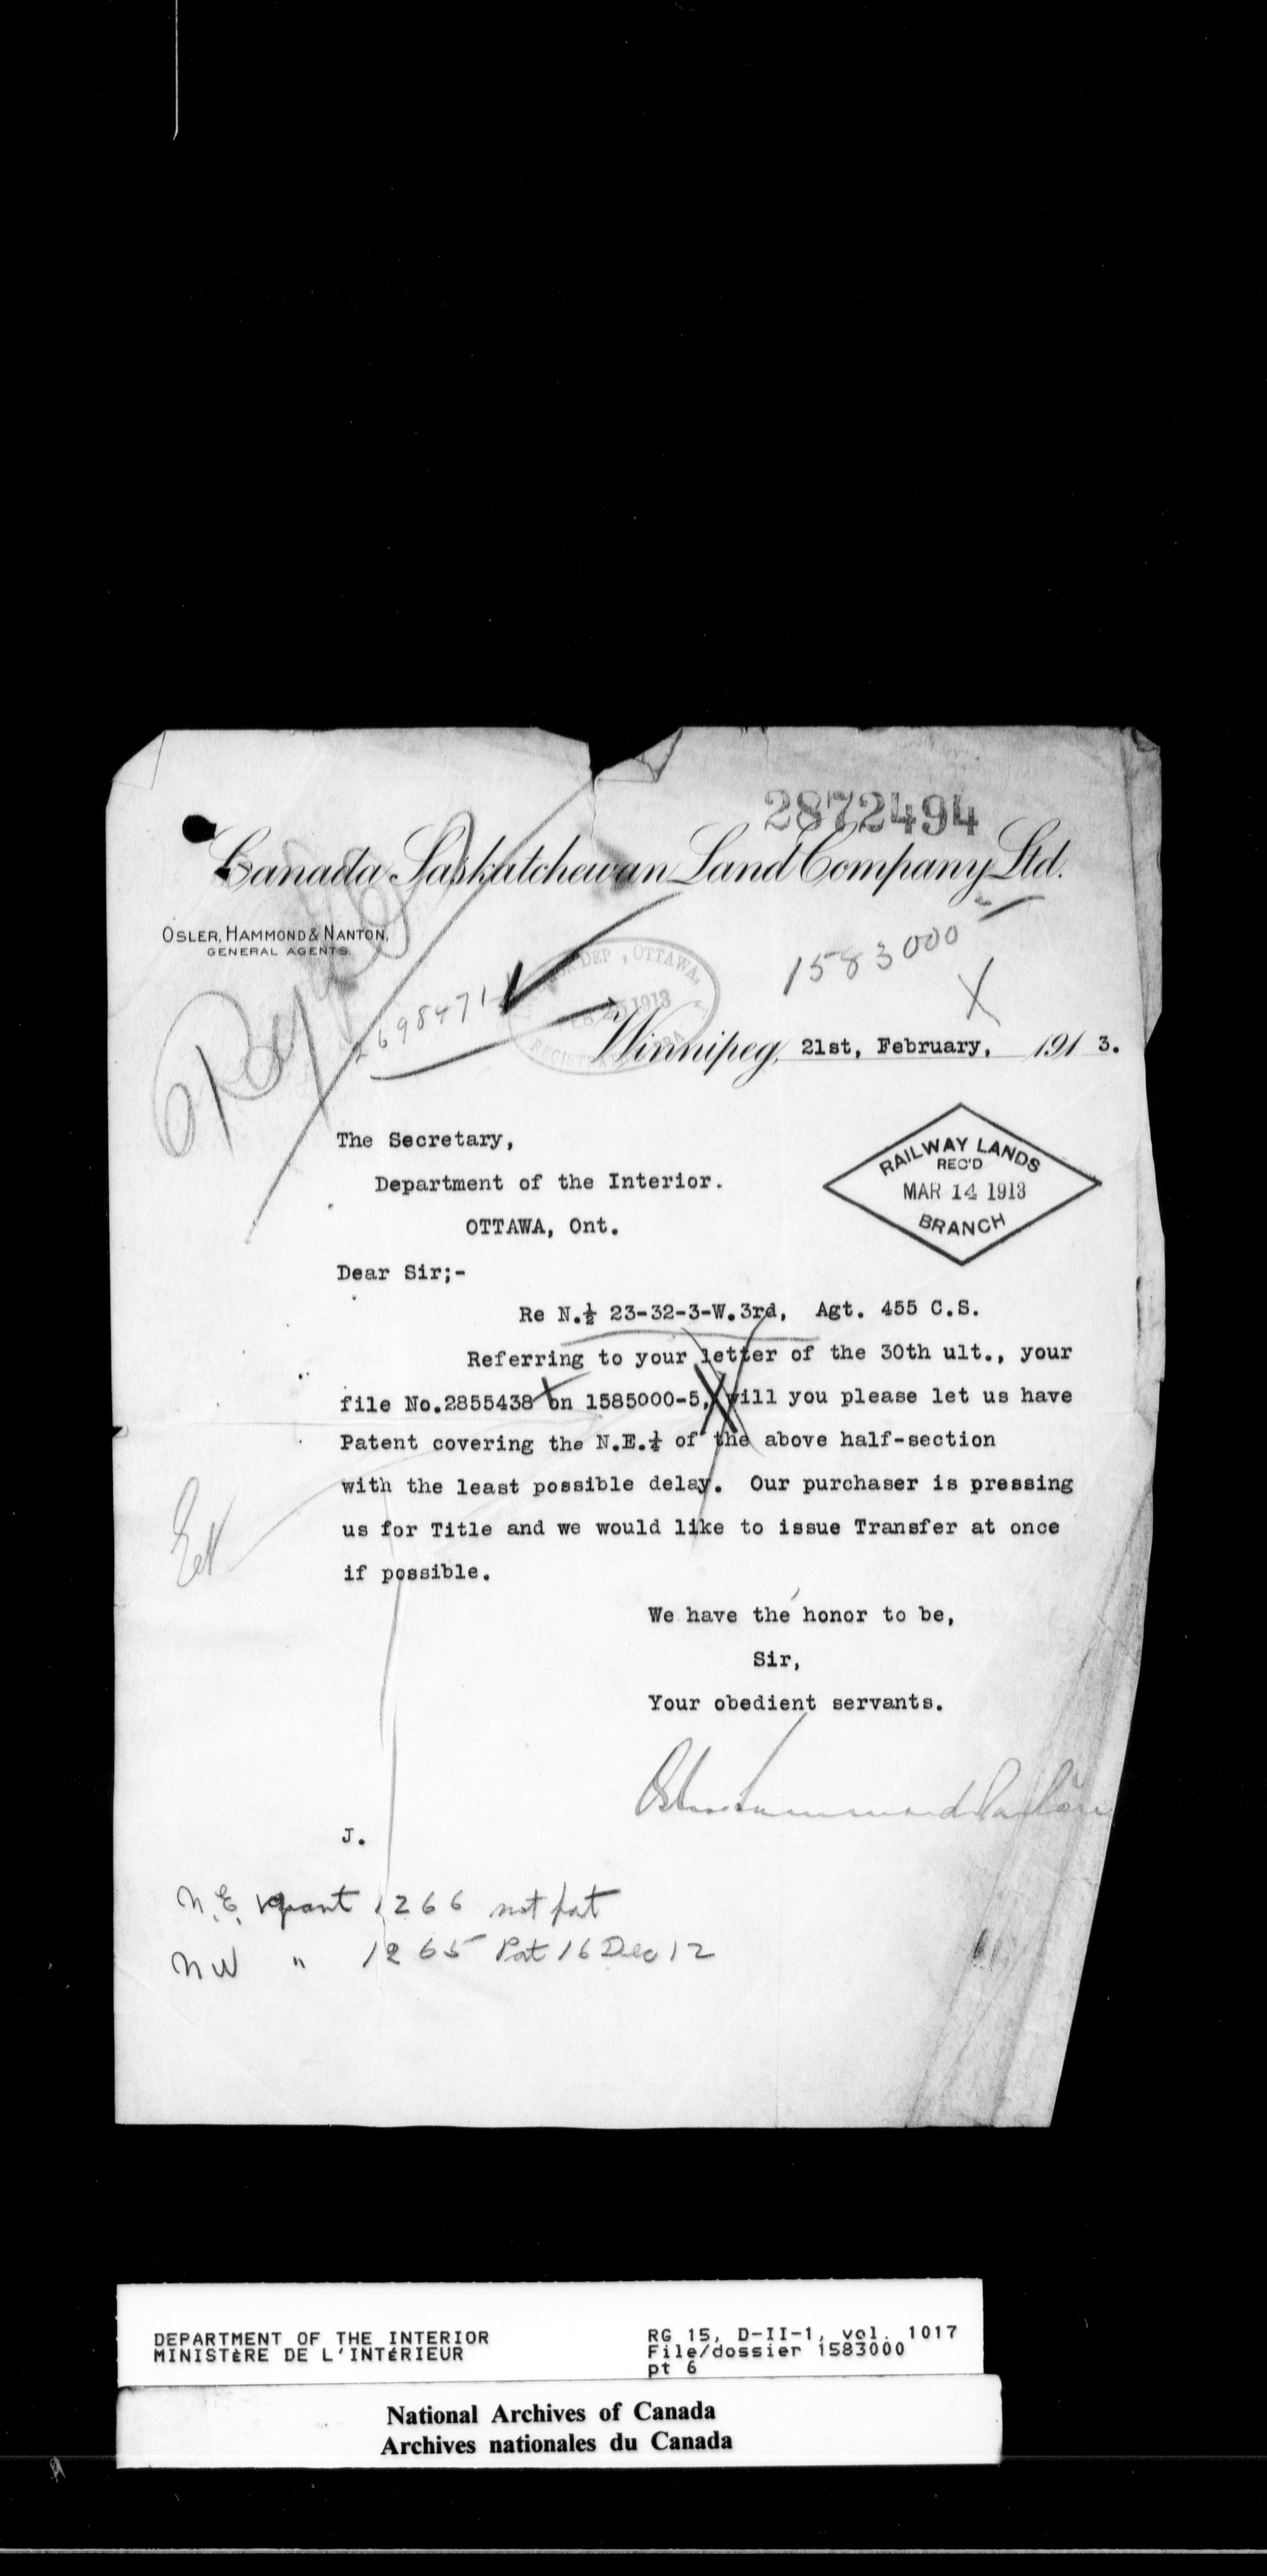 2872494
Canada Saskatchewan Land Company Ltd.
OSLER, HAMMOND & NANTON,
GENERAL AGENTS.
1583000
X
2698471
DEP, OTTAWA,
1913
Winnipeg, 21st, February, 1913.
The Secretary,
Department of the Interior.
OTTAWA, Ont.
RAILWAY LANDS
REC'D
MAR 14 1913
BRANCH
Dear Sir;-
Re N.½ 23-32-3-W.3rd, Agt. 455 C.S.
Referring to your letter of the 30th ult., your
file No.2855438 on 1585000-5, will you please let us have
Patent covering the N.E.¼ of the above half-section
with the least possible delay. Our purchaser is pressing
us for Title and we would like to issue Transfer at once
if possible.
We have the honor to be,
Sir,
Your obedient servants.
Osler Hammond Nanton
J.
N.E. 1266 not pat
NW " 1265 Pat 16 Dec 12
DEPARTMENT OF THE INTERIOR
MINISTÈRE DE L'INTÉRIEUR
RG 15, D-II-1, vol. 1017
File/dossier 1583000
pt 6
National Archives of Canada
Archives nationales du Canada